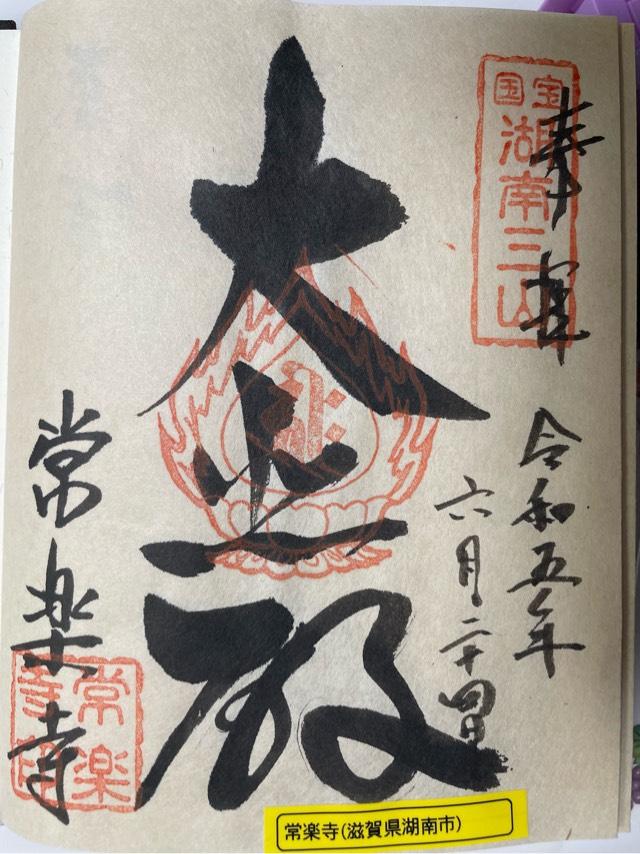 奉拝
国宝
湖南三山
令和五年
六月二十四日
大悲殿
常楽寺
常楽
寺印
常楽寺(滋賀県湖南市)